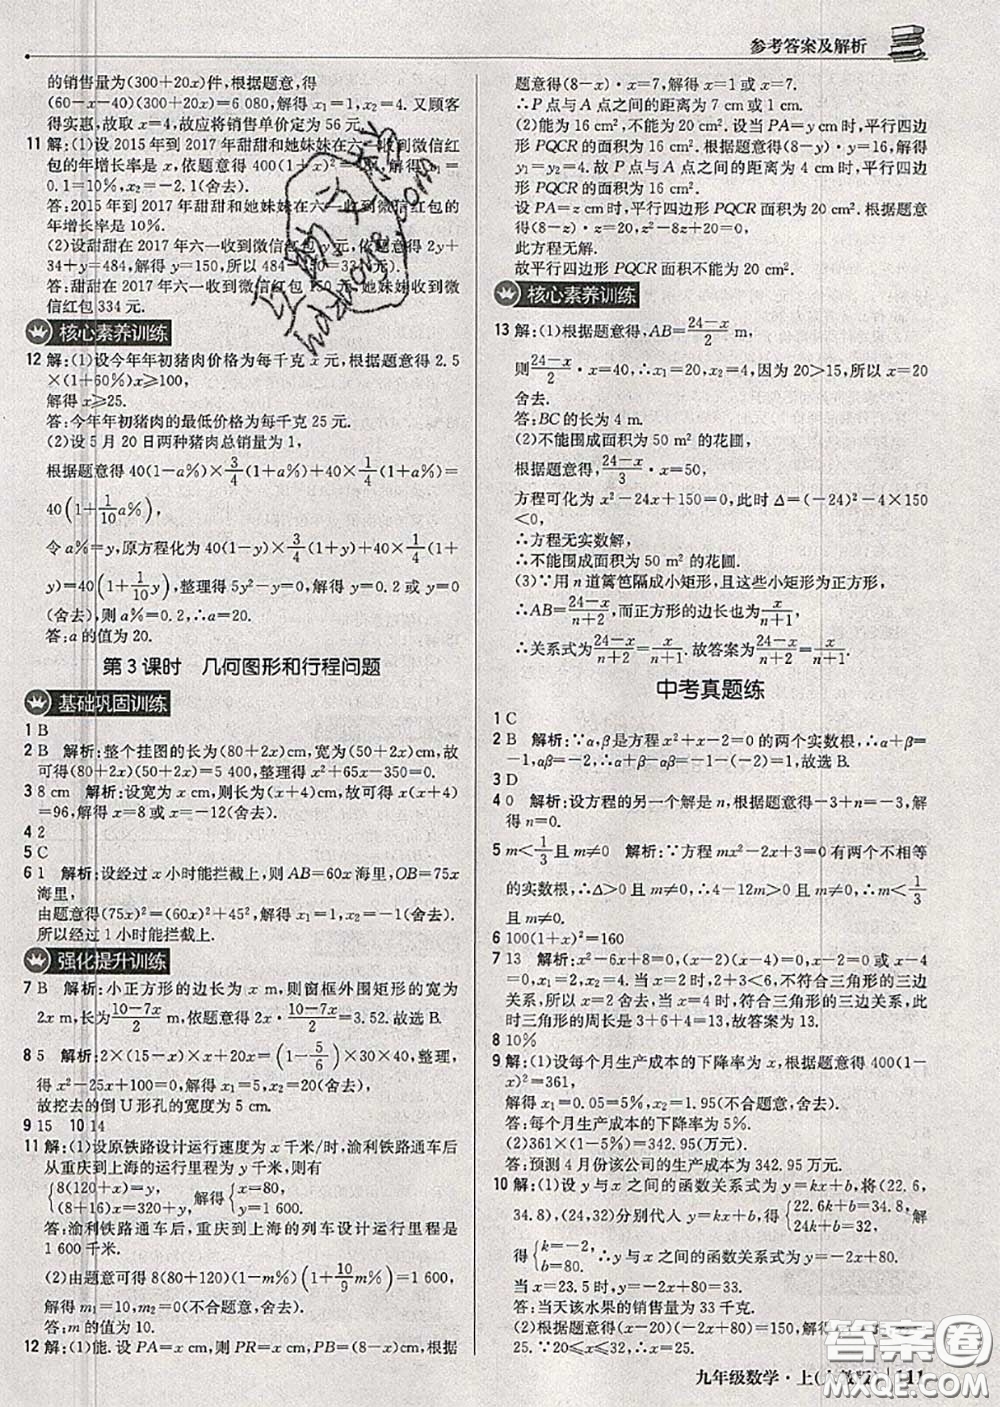 参考答案及解析
的销售量为(300+20x)件,根据题意,得
(60-x-40)(300+20x)=6 080,解得 x₁=1,x₂=4. 又顾客
得实惠,故取 x=4,故应将销售单价定为 56 元.
11 解:(1)设 2015 年到 2017 年甜甜和她妹妹在六一收到微信红
包的年增长率是 x,依题意得 400(1+x)²=484,解得 x₁=
0.1=10%,x₂=-2.1(舍去).
答:2015 年到 2017 年甜甜和她妹妹在六一收到微信红包的
年增长率是 10%.
(2)设甜甜在 2017 年六一收到微信红包 y 元,依题意得 2y+
34+y=484,解得 y=150,所以 484-150=334(元).
答:甜甜在 2017 年六一收到微信红包 150 元,她妹妹收到微
信红包 334 元.
核心素养训练
12 解:(1)设今年年初猪肉价格为每千克 x 元,根据题意得 2.5
×(1+60%)x≥100,
解得 x≥25.
答:今年年初猪肉的最低价格为每千克 25 元.
(2)设 5 月 20 日两种猪肉总销量为 1,
根据题意得 40(1-a%)×3/4(1+a%)+40×1/4(1+a%)=
40(1+1/10 a%),
令 a%=y,原方程化为 40(1-y)×3/4(1+y)+40×1/4(1+
y)=40(1+1/10 y),整理得 5y²-y=0,解得 y=0.2 或 y=0
(舍去),则 a%=0.2,∴a=20.
答:a 的值为 20.
第 3 课时 几何图形和行程问题
基础巩固训练
1 B
2 B 解析:整个挂图的长为(80+2x)cm,宽为(50+2x)cm,故
可得(80+2x)(50+2x)=5 400,整理得 x²+65x-350=0.
3 8 cm 解析:设宽为 x cm,则长为(x+4)cm,故可得 x(x+4)
=96,解得 x=8 或 x=-12(舍去).
4 2
5 C
6 1 解析:设经过 x 小时能拦截上,则 AB=60x 海里,OB=75x
海里,
由题意得(75x)²=(60x)²+45²,解得 x=1 或 x=-1(舍去).
所以经过 1 小时能拦截上.
强化提升训练
7 B 解析:小正方形的边长为 x m,则窗框外围矩形的宽为
2x m,长为(10-7x)/2 m,依题意得 2x·(10-7x)/2=3.52.故选 B.
8 5 解析:2×(15-x)×x+20x=(1-5/6)×30×40,整理,
得 x²-25x+100=0,解得 x₁=5,x₂=20(舍去),
故挖去的倒 U 形孔的宽度为 5 cm.
9 15 10 14
11 解:(1)设原铁路设计运行速度为 x 千米/时,渝利铁路通车后
从重庆到上海的运行里程为 y 千米,则有
{8(120+x)=y, (8+16)x=320+y, 解得{x=80, y=1 600.
答:渝利铁路通车后,重庆到上海的列车设计运行里程是
1 600 千米.
(2)由题意可得 8(80+120)(1-m%)(1+10/9 m%)=1 600,
解得 m₁=10,m₂=0(不合题意,舍去).
答:m 的值为 10.
12 解:(1)能. 设 PA=x cm,则 PR=x cm,PB=(8-x)cm,根据
题意得(8-x)·x=7,解得 x=1 或 x=7.
∴P 点与 A 点之间的距离为 7 cm 或 1 cm.
(2)能为 16 cm²,不能为 20 cm². 设当 PA=y cm时,平行四边
形 PQCR 的面积为 16 cm². 根据题意得(8-y)·y=16,解得
y₁=y₂=4. 故 P 点与 A 点之间的距离为 4 cm 时,平行四边
形 PQCR 面积为 16 cm².
设 PA=z cm 时,平行四边形 PQCR 面积为 20 cm². 根据题意
得(8-z)·z=20,z²-8z+20=0.
此方程无解.
故平行四边形 PQCR 面积不能为 20 cm².
核心素养训练
13 解:(1)根据题意得,AB=(24-x)/2 m,
则(24-x)/2·x=40,∴x₁=20,x₂=4,因为 20>15,所以 x=20
舍去.
答:BC 的长为 4 m.
(2)不能围成面积为 50 m² 的花圃.
根据题意得,(24-x)/3·x=50,
方程可化为 x²-24x+150=0,此时 Δ=(-24)²-4×150
<0,
∴方程无实数解,
∴不能围成面积为 50 m² 的花圃.
(3)∵用 n 道篱笆隔成小矩形,且这些小矩形为正方形,
∴AB=(24-x)/(n+2),而正方形的边长也为x/(n+1),
∴关系式为(24-x)/(n+2)=x/(n+1). 故答案为(24-x)/(n+2)=x/(n+1).
中考真题练
1 C
2 B 解析:∵α,β是方程 x²+x-2=0 的两个实数根,∴α+β=
-1,αβ=-2,∴α+β-αβ=-1-(-2)=1,故选 B.
3 D
4 0 解析:设方程的另一个解是 n,根据题意得-3+n=-3,
解得 n=0.
5 m<1/3且 m≠0 解析:∵方程 mx²-2x+3=0 有两个不相等
的实数根,∴Δ>0 且 m≠0,∴4-12m>0 且 m≠0,∴m<1/3
且 m≠0.
6 100(1+x)²=160
7 13 解析:x²-6x+8=0,(x-2)(x-4)=0,x-2=0 或 x-4
=0,x₁=2,x₂=4. 当 x=2 时,2+3<6,不符合三角形的三边
关系,所以 x=2 舍去. 当 x=4 时,符合三角形的三边关系,此
时三角形的周长是 3+6+4=13,故答案为 13.
8 10%
9 解:(1)设每个月生产成本的下降率为 x,根据题意得 400(1-
x)²=361,
解得 x₁=0.05=5%,x₂=1.95(不合题意,舍去).
答:每个月生产成本的下降率为 5%.
(2)361×(1-5%)=342.95(万元).
答:预测 4 月份该公司的生产成本为 342.95 万元.
10 解:(1)设 y 与 x 之间的函数关系式为 y=kx+b,将(22.6,
34.8),(24,32)分别代人 y=kx+b,得{22.6k+b=34.8, 24k+b=32, 解
得{k=-2, b=80. ∴y 与 x 之间的函数关系式为 y=-2x+80.
当 x=23.5 时,y=-2x+80=33.
答:当天该水果的销售量为 33 千克.
(2)根据题意得(x-20)(-2x+80)=150,解得 x₁=35,x₂=
25.∵20≤x≤32,∴x=25.
九年级数学·上(人教版) 111
答案圈
MXQE.COM